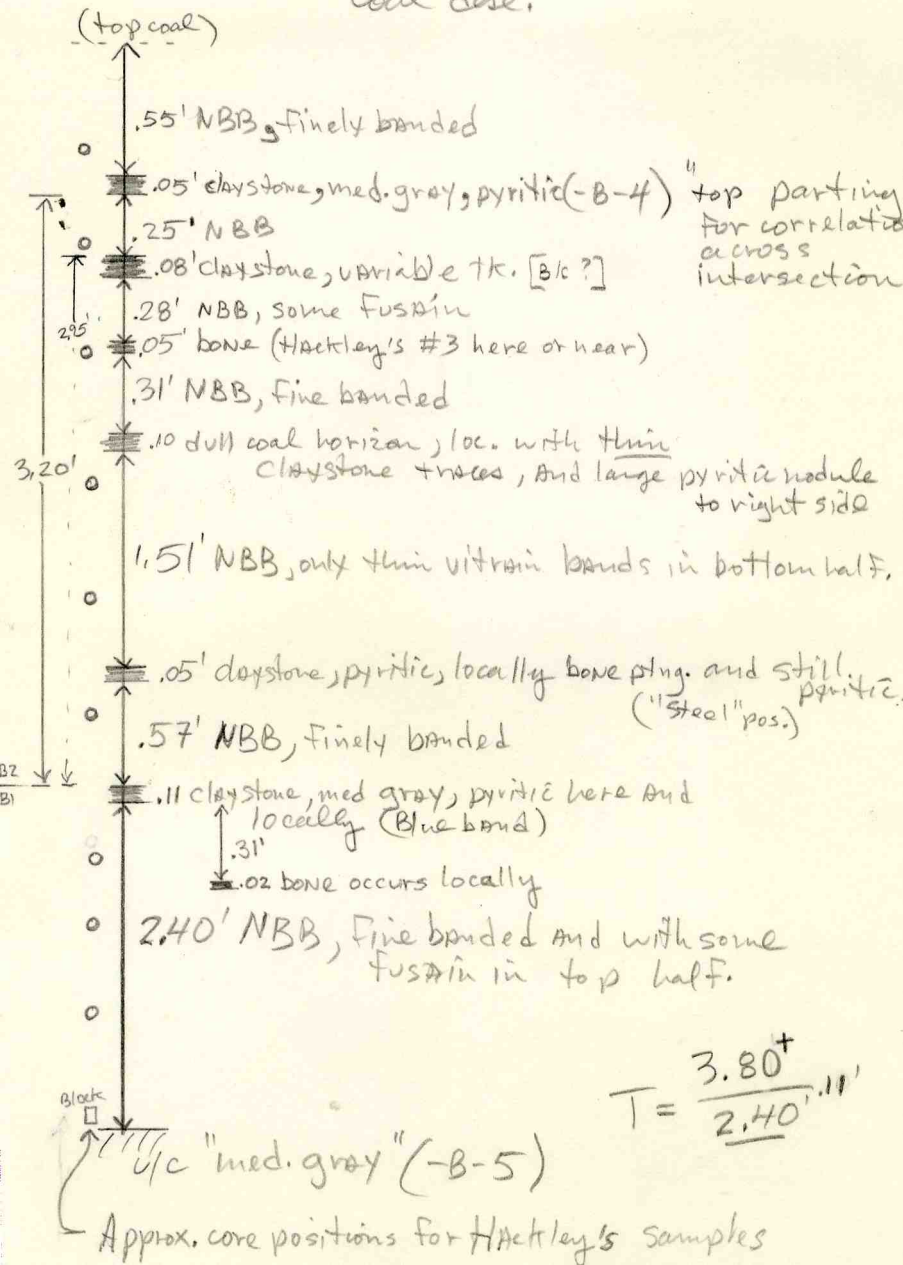 coal base.
(top coal)
.55' NBB, finely banded
.05' claystone, med. gray, pyritic (-B-4) "top parting
for correlatio
across
intersection
.25' NBB
.08' claystone, variable tk. [B/c ?]
.28' NBB, some fusain
2.95'
.05' bone (Hackley's #3 here or near)
.31' NBB, fine banded
.10 dull coal horizon, loc. with thin
claystone traces, and large pyritic nodule
to right side
3.20'
1.51' NBB, only thin vitrain bands in bottom half.
.05' claystone, pyritic, locally bone ptng. and still
pyritic.
("Steel" pos.)
.57' NBB, finely banded
B2
B1
.11 claystone, med gray, pyritic here and
locally (Blue band)
.31'
.02 bone occurs locally
2.40' NBB, fine banded and with some
fusain in top half.
T = 3.80+
2.40' .11'
Block
u/c "med. gray" (-B-5)
Approx. core positions for Hackley's samples